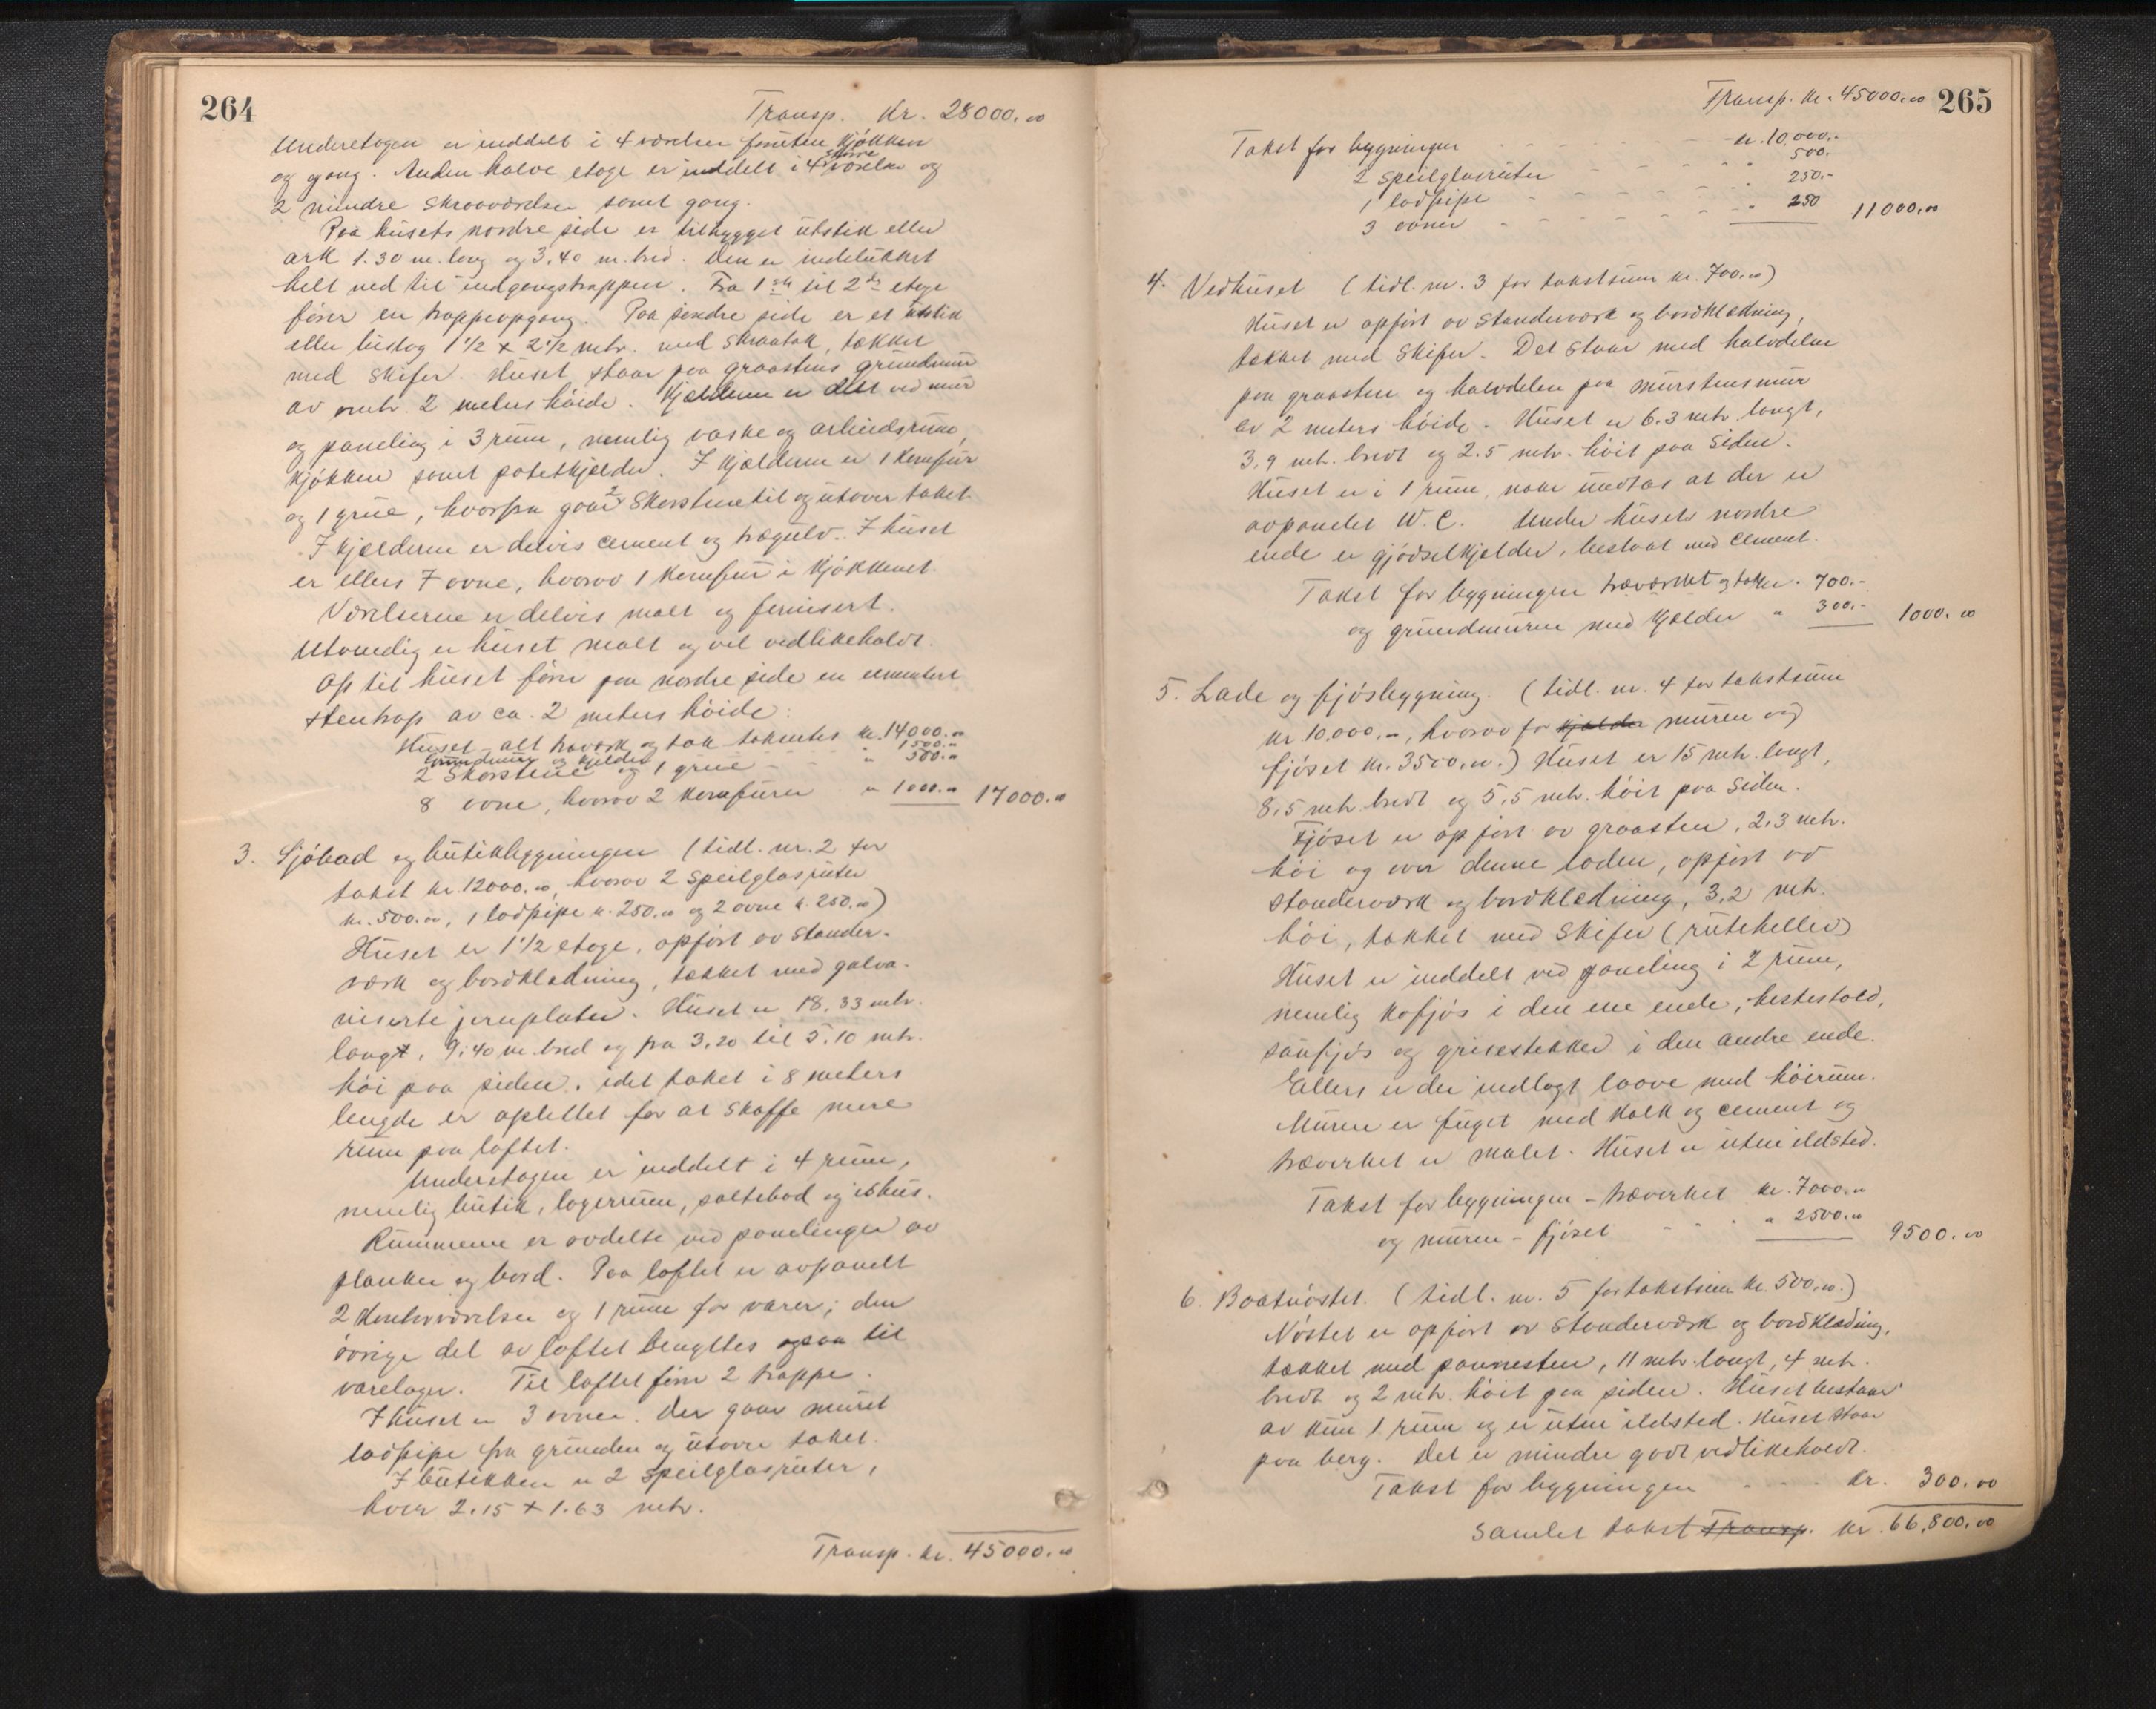 264
Transp. Kr. 28000.00
Underetagen er inddelt i 4 værelser foruten kjøkken
og gang. Anden halve etage er inddelt i 4 større værelser og
2 mindre skraaværelser samt gang.
Paa husets nordre side er tilbygget utstik eller
ark 1.30 m. lang og 3,40 m. bred. Den er indelukket
helt ned til indgangstrappen. Fra 1ste til 2den etage
fører en trappeopgang. Paa søndre side er et utstik
eller bislag 1 1/2 x 2 1/2 mtr. med skraatak, tækket
med skifer. Huset staar paa graastens grundmur
av omtr. 2 meters høide. Kjælderen er delt ved mur
og paneling i 3 rum, nemlig vaske og arbeidsrum,
kjøkken samt potetkjælder. I kjælderen er 1 komfur
og 1 grue, hvorfra gaar 2 skorstene til og utover taket.
I kjælderen er delvis cement og trægulv. I huset
er ellers 7 ovne, hvorav 1 komfur i kjøkkenet.
Værelserne er delvis malt og fernisert.
Utvendig er huset malt og vel vedlikeholdt.
Op til huset fører paa nordre side en cementert
stentrap av ca. 2 meters høide:
Huset - alt træverk og tak takseres kr. 14000.00
Grundmur og kjelder 1500.00
2 skorstene og 1 grue - - " 500.00
8 ovne, hvorav 2 komfurer " 1000.00 17000.00
3. Sjøbad og butikbygningen (tidl. nr. 2 for
takst kr. 12000.00, hvorav 2 speilglasruter
kr. 500.00, 1 lodpipe kr. 250.00 og 2 ovne kr. 250.00)
Huset er 1 1/2 etage, opført av stander-
værk og bordklædning, tækket med galva-
niserte jernplater. Huset er 18.33 mtr.
langt, 9.40 m. bred og fra 3.20 til 5.10 mtr.
høi paa siden, idet taket i 8 meters
lengde er oplettet for at skaffe mere
rum paa loftet.
Underetagen er inddelt i 4 rum,
nemlig butik, lagerrum, saltebod og ishus.
Rummene er avdelte ved panelinger av
planker og bord. Paa loftet er avpanelt
2 kontorværelser og 1 rum for varer; den
øvrige del av loftet benyttes ogsaa til
varelager. Til loftet fører 2 trappe.
I huset er 3 ovner. Der gaar muret
lodpipe fra grunden og utover taket.
I butikken er 2 speilglasruter,
hver 2.15 x 1.63 mtr.
Transp. kr. 45000.00
Transp. kr. 45000.00 265
Takst for bygningen - - - kr. 10,000.-
2 speilglasruter - - - " 500.-
1 lodpipe - - - " 250.-
3 ovner - - - " 250 11000.00
4. Vedhuset (tidl. nr. 3 for takstsum kr. 700.00)
Huset er opført av standerværk og bordklædning,
tækket med skifer. Det staar med halvdelen
paa graasten og halvdelen paa murstensmur
av 2 meters høide. Huset er 6.3 mtr. langt,
3.9 mtr. bredt og 2.5 mtr. høit paa siden.
Huset er i 1 rum, naar undtas at der er
avpanelet W.C. Under husets nordre
ende er gjødselkjelder, beslaat med cement.
Takst for bygningen træværket og taket . 700.-
og grundmuren med kjælder " 300.- 1000.00
5. Lade og fjøsbygning. (tidl. nr. 4 for takstsum
kr 10.000.00, hvorav for kjelder muren og
fjøset kr. 3500.00.) Huset er 15 mtr. langt,
8,5 mtr. bredt og 5,5 mtr. høit paa siden.
Fjøset er opført av graasten, 2.3 mtr.
høi og over denne laden, opført av
standerværk og bordklædning, 3,2 mtr.
høi, tækket med skifer (ruteheller)
Huset er inddelt ved paneling i 2 rum,
nemlig kofjøs i den ene ende, hestestald,
saufjøs og grisestekker i den andre ende.
Ellers er der indlagt laave med høirum.
Muren er fuget med kalk og cement og
træverket er malet. Huset er uten ildsted.
Takst for bygningen - træverket kr. 7000.00
og muren - fjøset - - - " 2500.00 9500.00
6. Baatnøstet. (tidl. nr. 5 for takstsum kr. 500.00.)
Nøstet er opført av standerværk og bordklædning,
tækket med pannesten, 11 mtr. langt, 4 mtr.
bredt og 2 mtr. høit paa siden. Huset bestaar
av kun 1 rum og er uten ildsted. Huset staar
paa berg. Det er mindre godt vedlikeholdt.
Takst for bygningen - - - kr. 300.00
Samlet takst Transp. kr. 66,800.00